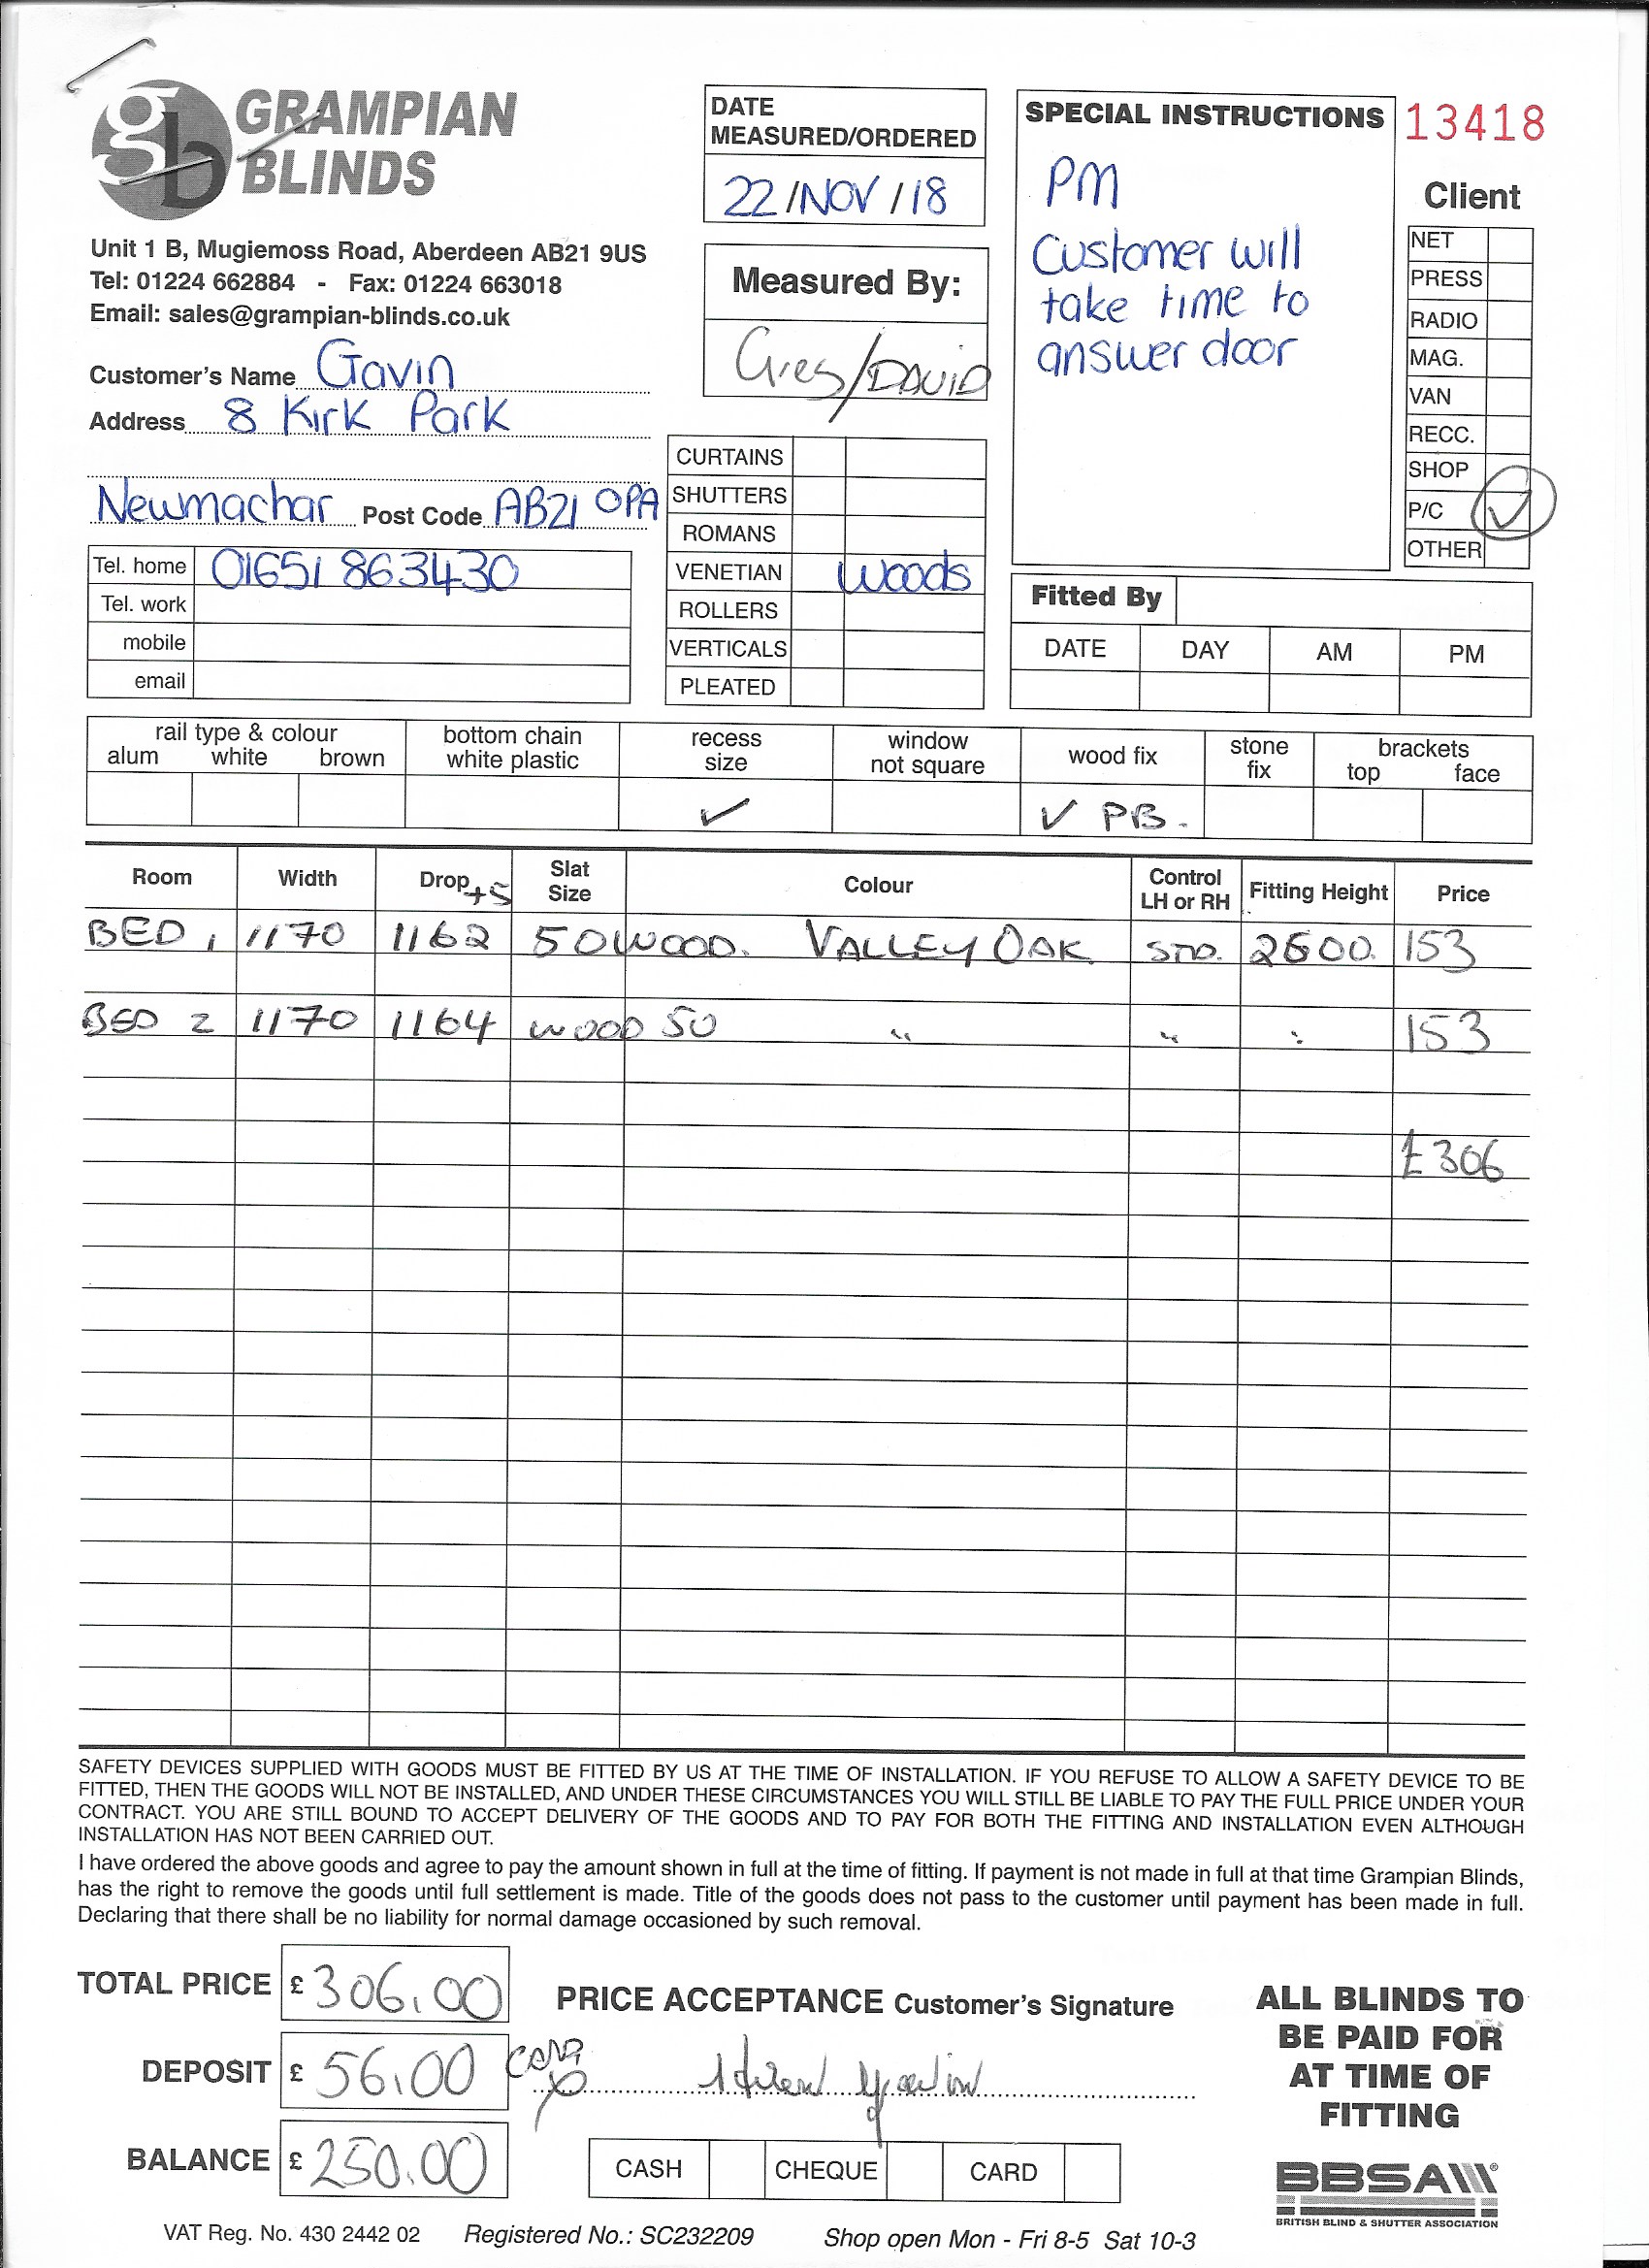 GRAMPIAN
BLINDS
gb
Unit 1 B, Mugiemoss Road, Aberdeen AB21 9US
Tel: 01224 662884 - Fax: 01224 663018
Email: sales@grampian-blinds.co.uk
Customer's Name Gavin
Address 8 Kirk Park
Newmachar Post Code AB21 0PA
Tel. home 01651 863430
Tel. work
mobile
email
DATE
MEASURED/ORDERED
22/NOV/18
Measured By:
Greg/DAVID
CURTAINS
SHUTTERS
ROMANS
VENETIAN Woods
ROLLERS
VERTICALS
PLEATED
SPECIAL INSTRUCTIONS
PM
Customer will
take time to
answer door
13418
Client
NET
PRESS
RADIO
MAG.
VAN
RECC.
SHOP
P/C ✓
OTHER
Fitted By
DATE DAY AM PM
rail type & colour
alum white brown
bottom chain
white plastic
recess
size
✓
window
not square
wood fix
✓ PB.
stone
fix
brackets
top face
Room Width Drop +5 Slat Size Colour Control LH or RH Fitting Height Price
BED 1 1170 1162 50 WOOD. VALLEY OAK STD. 2600. 153
BED 2 1170 1164 WOOD 50 " " " 153
£306
SAFETY DEVICES SUPPLIED WITH GOODS MUST BE FITTED BY US AT THE TIME OF INSTALLATION. IF YOU REFUSE TO ALLOW A SAFETY DEVICE TO BE
FITTED, THEN THE GOODS WILL NOT BE INSTALLED, AND UNDER THESE CIRCUMSTANCES YOU WILL STILL BE LIABLE TO PAY THE FULL PRICE UNDER YOUR
CONTRACT. YOU ARE STILL BOUND TO ACCEPT DELIVERY OF THE GOODS AND TO PAY FOR BOTH THE FITTING AND INSTALLATION EVEN ALTHOUGH
INSTALLATION HAS NOT BEEN CARRIED OUT.
I have ordered the above goods and agree to pay the amount shown in full at the time of fitting. If payment is not made in full at that time Grampian Blinds,
has the right to remove the goods until full settlement is made. Title of the goods does not pass to the customer until payment has been made in full.
Declaring that there shall be no liability for normal damage occasioned by such removal.
TOTAL PRICE £ 306.00
DEPOSIT £ 56.00 CARD
BALANCE £ 250.00
PRICE ACCEPTANCE Customer's Signature
Helen Gavin
CASH CHEQUE CARD
ALL BLINDS TO
BE PAID FOR
AT TIME OF
FITTING
BBSA
BRITISH BLIND & SHUTTER ASSOCIATION
VAT Reg. No. 430 2442 02 Registered No.: SC232209 Shop open Mon - Fri 8-5 Sat 10-3